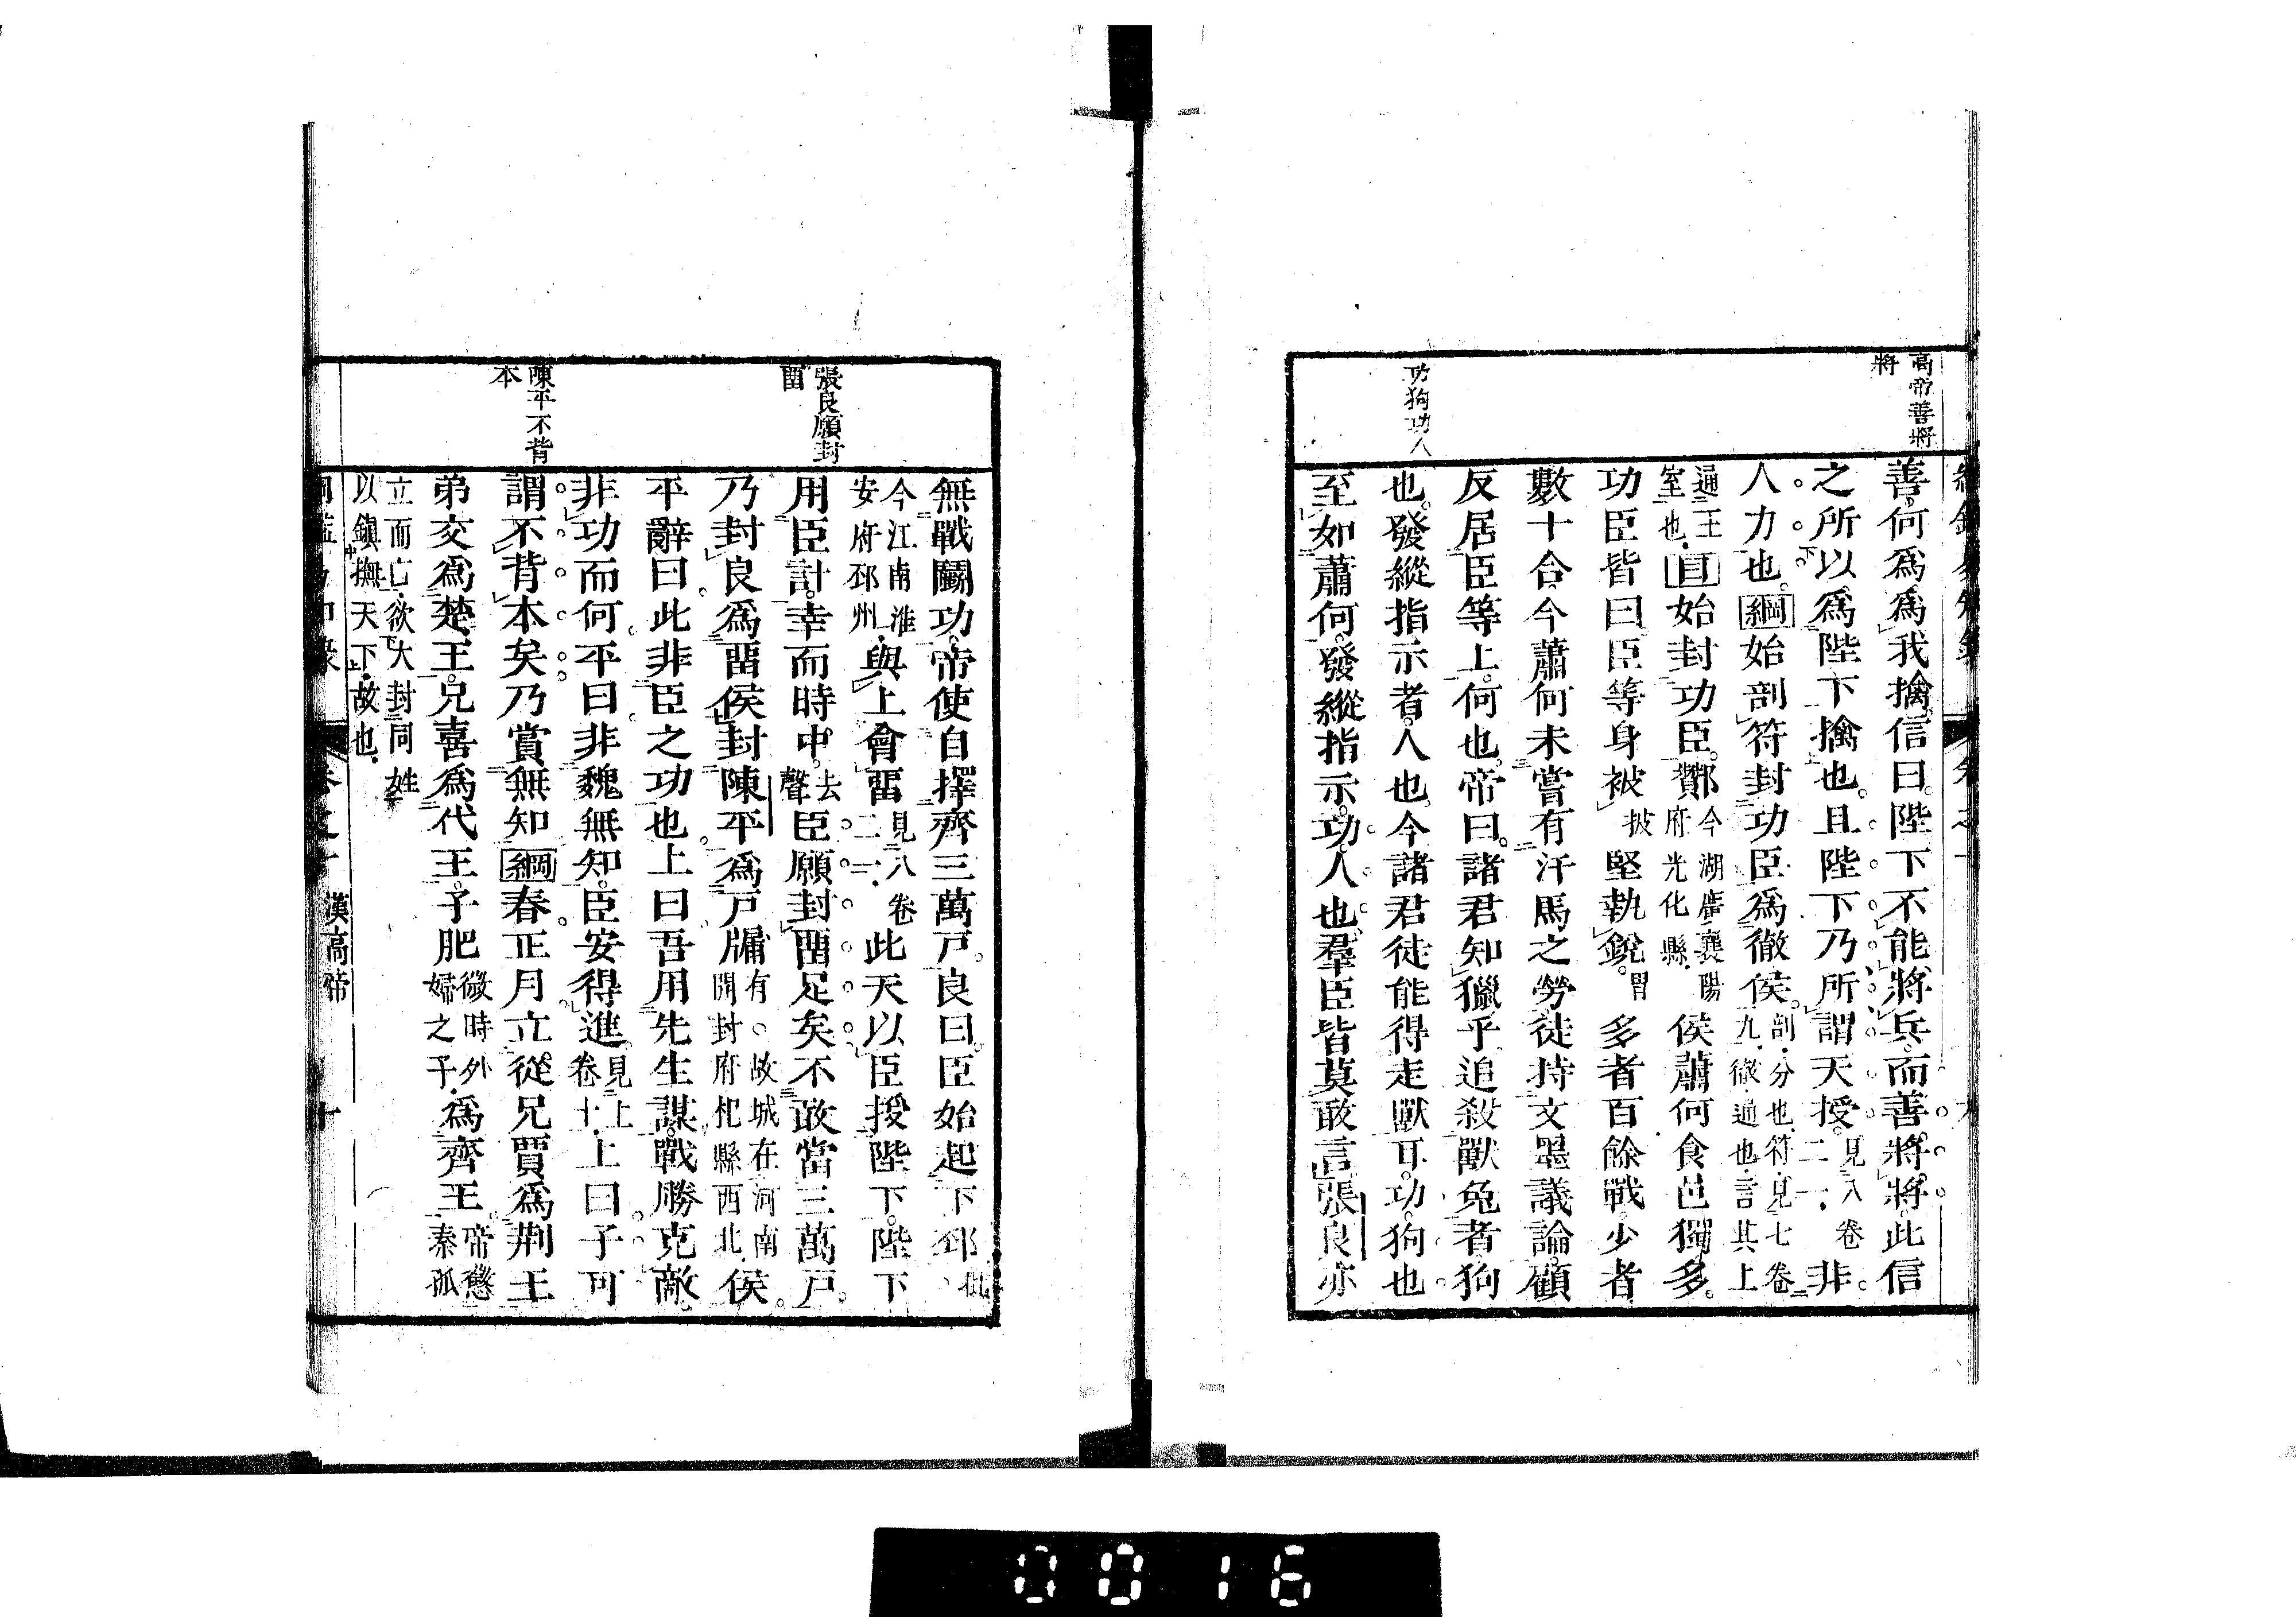 高帝善將
將
善何爲爲我擒信曰陛下不能將兵而善將將此信
之所以爲陛下擒也且陛下乃所謂天授見八卷二一非
人力也綱始剖符封功臣爲徹侯剖分也符見七卷九徹通也言其上
通王室也目始封功臣酇今湖廣襄陽府光化縣侯蕭何食邑獨多
功臣皆曰臣等身被披堅執銳多者百餘戰少者
數十合今蕭何未嘗有汗馬之勞徒持文墨議論顧
反居臣等上何也帝曰諸君知獵乎追殺獸兔者狗
功狗功人
也發縱指示者人也今諸君徒能得走獸耳功狗也
至如蕭何發縱指示功人也羣臣皆莫敢言張良亦
無戰鬭功帝使自擇齊三萬戶良曰臣始起下邳
今江南淮安府邳州與上會畱見八卷二一此天以臣授陛下陛下
張良願封
畱
用臣計幸而時中去聲臣願封畱足矣不敢當三萬戶
乃封良爲畱侯封陳平爲戶牖有故城在河南開封府杞縣西北侯
平辭曰此非臣之功也上曰吾用先生謀戰勝克敵
非功而何平曰非魏無知臣安得進見上卷十上曰子可
陳平不背
本
謂不背本矣乃賞無知綱春正月立從兄賈爲荆王
弟交爲楚王兄喜爲代王子肥微時外婦之子爲齊王帝懲秦孤
立而亡欲大封同姓以鎮撫天下故也
漢高帝
十
0016